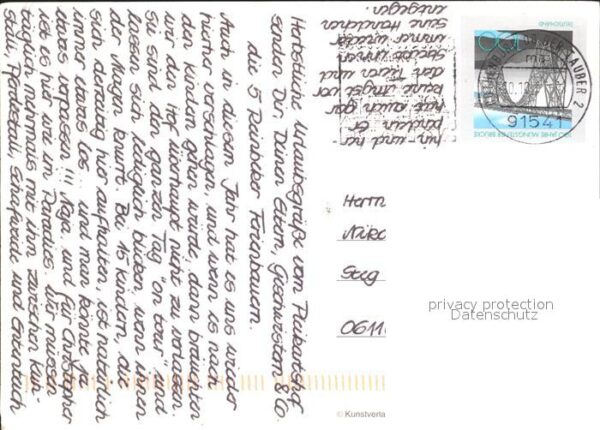 Herbstliche Urlaubsgrüße vom
senden Dir, Deinen Eltern, Geschwistern & Co.
die 5
Auch in diesem Jahr hat es uns wieder
hierher verschlagen, und wenn es nach
den Kindern gehen würde, dann bräuchten
wir den Hof überhaupt nicht zu verlassen.
Sie sind den ganzen Tag "on tour" und
lassen sich lediglich blicken, wenn ihnen
der Magen knurrt. Bei 15 Kindern, die
sich derzeitig hier aufhalten, ist natürlich
immer was los - und man könnte ja
etwas verpassen!!! Naja. und für Christopher
ist es hier wie im Paradies. Wir müssen
täglich mehrmals mit ihm zwischen Kuh-
stall, Pferdestall, Schafweide und Ententeich
hin- und her
pendeln. Er
hat auch gar
keine Angst vor
den Tieren und
streckt ihnen
immer wieder
seine Händchen
entgegen.
DEUTSCHLAND
100
100 JAHRE MÜNGSTENER BRÜCKE
TAUBER 2
91541
Herrn
06110
privacy protection
Datenschutz
© Kunstverla